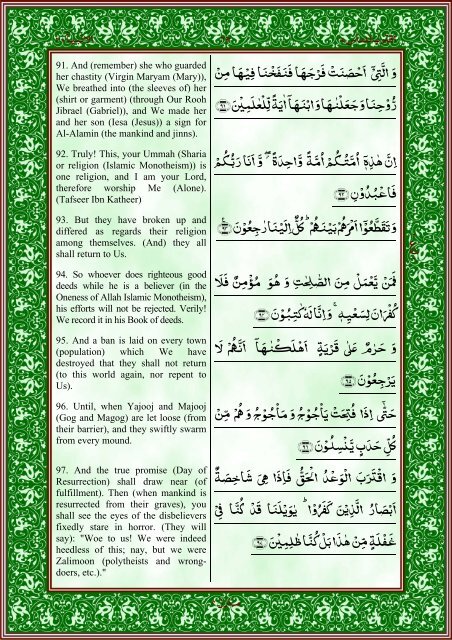 91. And (remember) she who guarded
her chastity (Virgin Maryam (Mary)),
We breathed into (the sleeves of) her
(shirt or garment) (through Our Rooh
Jibrael (Gabriel)), and We made her
and her son (Iesa (Jesus)) a sign for
Al-Alamin (the mankind and jinns).
وَ الَّتِیْۤ اَحْصَنَتْ فَرْجَهَا فَنَفَخْنَا فِیْهَا مِنْ
رُّوْحِنَا وَ جَعَلْنٰهَا وَ ابْنَهَاۤ اٰیَةً لِّلْعٰلَمِیْنَ ﴿۹۱﴾
92. Truly! This, your Ummah (Sharia
or religion (Islamic Monotheism)) is
one religion, and I am your Lord,
therefore worship Me (Alone).
(Tafseer Ibn Katheer)
اِنَّ هٰذِهٖۤ اُمَّتُكُمْ اُمَّةً وَّاحِدَةً ۖ٘ وَّ اَنَا رَبُّكُمْ
فَاعْبُدُوْنِ ﴿۹۲﴾
93. But they have broken up and
differed as regards their religion
among themselves. (And) they all
shall return to Us.
وَ تَقَطَّعُوْۤا اَمْرَهُمْ بَیْنَهُمْ ؕ كُلٌّ اِلَیْنَا رٰجِعُوْنَ ﴿۹۳﴾
94. So whoever does righteous good
deeds while he is a believer (in the
Oneness of Allah Islamic Monotheism),
his efforts will not be rejected. Verily!
We record it in his Book of deeds.
فَمَنْ یَّعْمَلْ مِنَ الصّٰلِحٰتِ وَ هُوَ مُؤْمِنٌ فَلَا
كُفْرَانَ لِسَعْیِهٖ ۚ وَ اِنَّا لَهٗ كٰتِبُوْنَ ﴿۹۴﴾
95. And a ban is laid on every town
(population) which We have
destroyed that they shall not return
(to this world again, nor repent to
Us).
وَ حَرٰمٌ عَلٰی قَرْیَةٍ اَهْلَكْنٰهَاۤ اَنَّهُمْ لَا
یَرْجِعُوْنَ ﴿۹۵﴾
96. Until, when Yajooj and Majooj
(Gog and Magog) are let loose (from
their barrier), and they swiftly swarm
from every mound.
حَتّٰۤی اِذَا فُتِحَتْ یَاْجُوْجُ وَ مَاْجُوْجُ وَ هُمْ مِّنْ
كُلِّ حَدَبٍ یَّنْسِلُوْنَ ﴿۹۶﴾
97. And the true promise (Day of
Resurrection) shall draw near (of
fulfillment). Then (when mankind is
resurrected from their graves), you
shall see the eyes of the disbelievers
fixedly stare in horror. (They will
say): "Woe to us! We were indeed
heedless of this; nay, but we were
Zalimoon (polytheists and wrong-
doers, etc.)."
وَ اقْتَرَبَ الْوَعْدُ الْحَقُّ فَاِذَا هِیَ شَاخِصَةٌ
اَبْصَارُ الَّذِیْنَ كَفَرُوْا ؕ یٰوَیْلَنَا قَدْ كُنَّا فِیْ
غَفْلَةٍ مِّنْ هٰذَا بَلْ كُنَّا ظٰلِمِیْنَ ﴿۹۷﴾